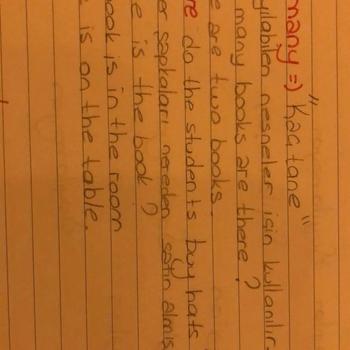 many => "Kaç tane"
yılabilen nesneler için kullanılır.
many books are there?
e are two books.
re do the students buy hats
er şapkaları nereden satın almış
e is the book?
ook is in the room
is on the table.